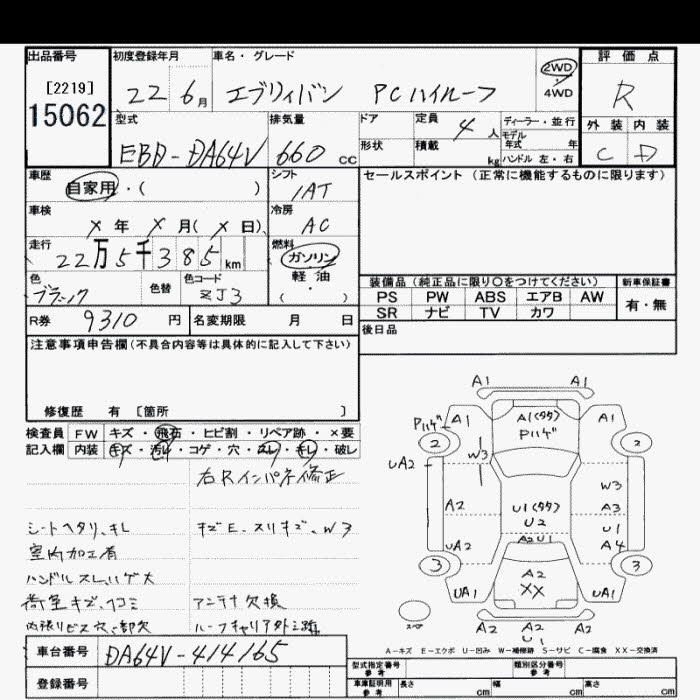 出品番号 初度登録年月 車名・グレード 評価点
[2219] 22 6月 エブリィバン PCハイルーフ 2WD・4WD R
15062
型式 排気量 ドア 定員 4人 ディーラー・並行 外装 内装
EBD-DA64V 660cc 形状 積載 kg モデル年式 年 ハンドル 左・右 C D
車歴 シフト セールスポイント (正常に機能するものに限ります)
自家用・( ) IAT
車検 冷房
X年 X月(X日) AC
走行 燃料
22万5千385km ガソリン
色 色替 色コード 軽・油
ブラック ZJ3 (・)
装備品 (純正品に限り○をつけてください) 新車保証書
PS PW ABS エアB AW 有・無
SR ナビ TV カワ
R券 9310円 名変期限 月 日
後日品
注意事項申告欄(不具合内容等は具体的に記入して下さい)
修復歴 有 〔箇所 〕
検査員 FW キズ・飛石・ヒビ割・リペア跡・×要
記入欄 内装 キズ・汚レ・コゲ・穴・スレ・キレ・破レ
右Rインパネ修正
シートヘタリ、キレ キズE、スリキズ、W3
室内加工有
ハンドルスレ、ハゲ大
荷室キズ、凹ミ アンテナ欠損
内張リビス穴、一部欠 ルーフキャリア外シ跡
車台番号 DA64V-414165
登録番号
A1 A1
Pハゲ A1 A1(タタ) A1
Pハゲ
2 2
UA2 W3 W3
A2 U1(タタ) A3
U2 U1
UA2 A2 U1 A4
3 A2 3
UA1 XX UA1
スペア A2 A2 A2
U1
A-キズ E-エクボ U-凹み W-補修跡 S-サビ C-腐食 XX-交換済
型式指定番号 参考 類別区分番号 参考
車庫証明用 参考 長さ cm 幅 cm 高さ cm